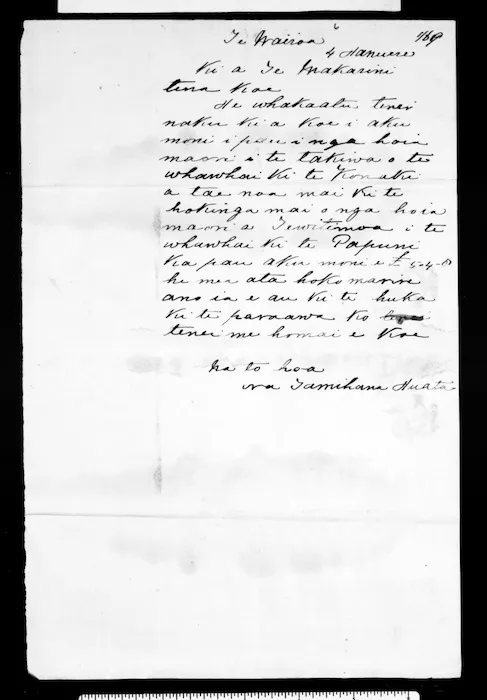 Te Wairoa
4 Hanuere /69
Ki a Te Makarini
tena koe
He whakaatu tenei
naku ki a koe i aku
moni i pau i nga hoia
maori i te takiwa o te
whawhai ki te
a tae noa mai ki te
hokinga mai o nga hoia
maori a i te
whawhai ki te Papuni
ka pau aku moni e £5-4-0
he mea ata hoko marire
ano ia e au ki te huka
ki te paraawa ko
tenei me homai e koe
Na to hoa
Na Tamihana Huata